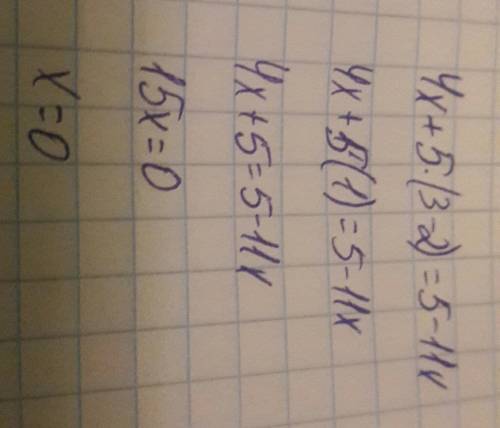 4x+5·(3-2)=5-11x
4x+5(1)=5-11x
4x+5=5-11x
15x=0
x=0